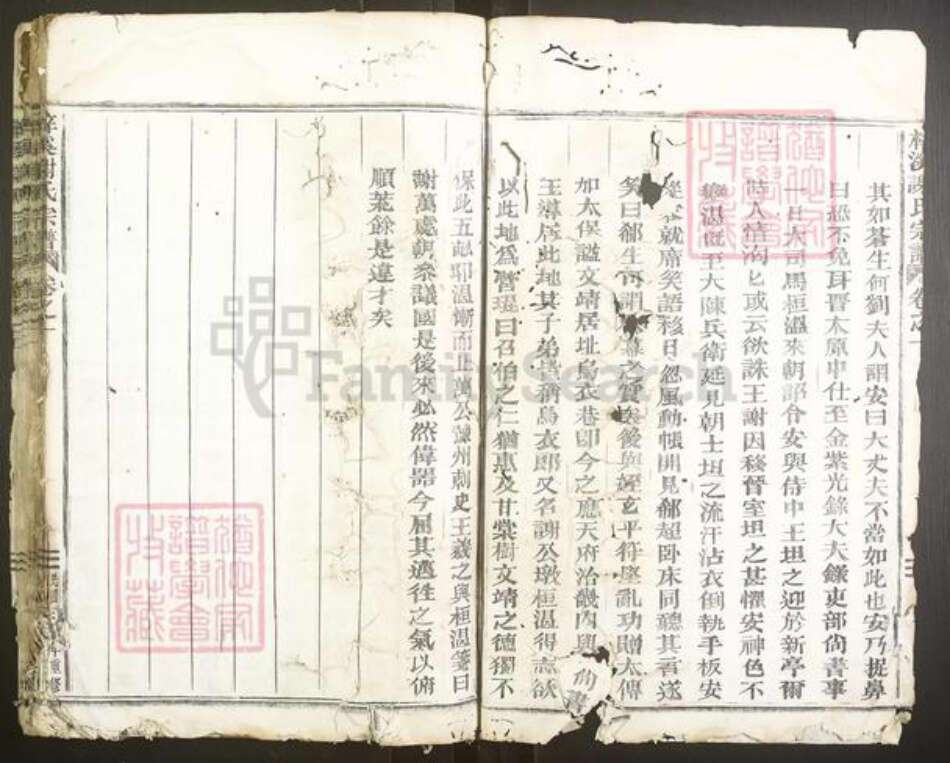 其如蒼生何劉夫人謂安曰大丈夫不當如此也安乃捉鼻
曰恐不免耳晋太原中仕至金紫光錄大夫鎂吏部尙書事
一日大司馬桓溫來朝詔令安與侍中王坦之迎於新亭爾
時人情洶匕或云欲誅王謝因移晉室坦之甚懼安神色不
變溫旣至大陳兵衛延見朝士坦之流汗沾衣倒執手板安
從容就席笑語移日忽風動帳開見郗超卧床同聽其言遂
笑曰郗生可謂入幕之賓矣後與姪玄平符堅亂功贈太傅
如太保謚文靖居址烏衣巷卽今之應天府治畿內與尙書
王導居此地其子弟皆稱烏衣郎又名謝公墩桓温得志欲
以此地爲營琨曰召伯之仁猶惠及甘棠樹文靖之德獨不
保此五畝卽温慚而止萬公豫州刺史王羲之與桓温箋曰
謝萬處朝叅議國是後來必然偉器今屈其邁徃之氣以俯
順萊餘是違才矣
謝氏宗譜 卷之一
謝氏宗譜 卷之一
重修
譜學會
收藏
譜學會
收藏
FamilySearch